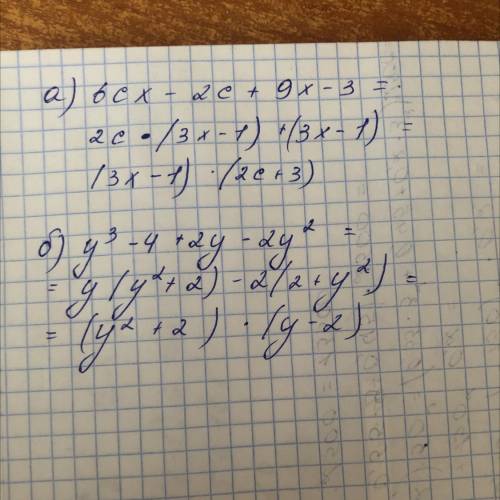 а) 6cx - 2c + 9x - 3 =
2c • (3x - 1) + (3x - 1) =
(3x - 1) · (2c + 3)
б) y³ - 4 + 2y - 2y² =
= y (y² + 2) - 2 (2 + y²) =
= (y² + 2) · (y - 2)